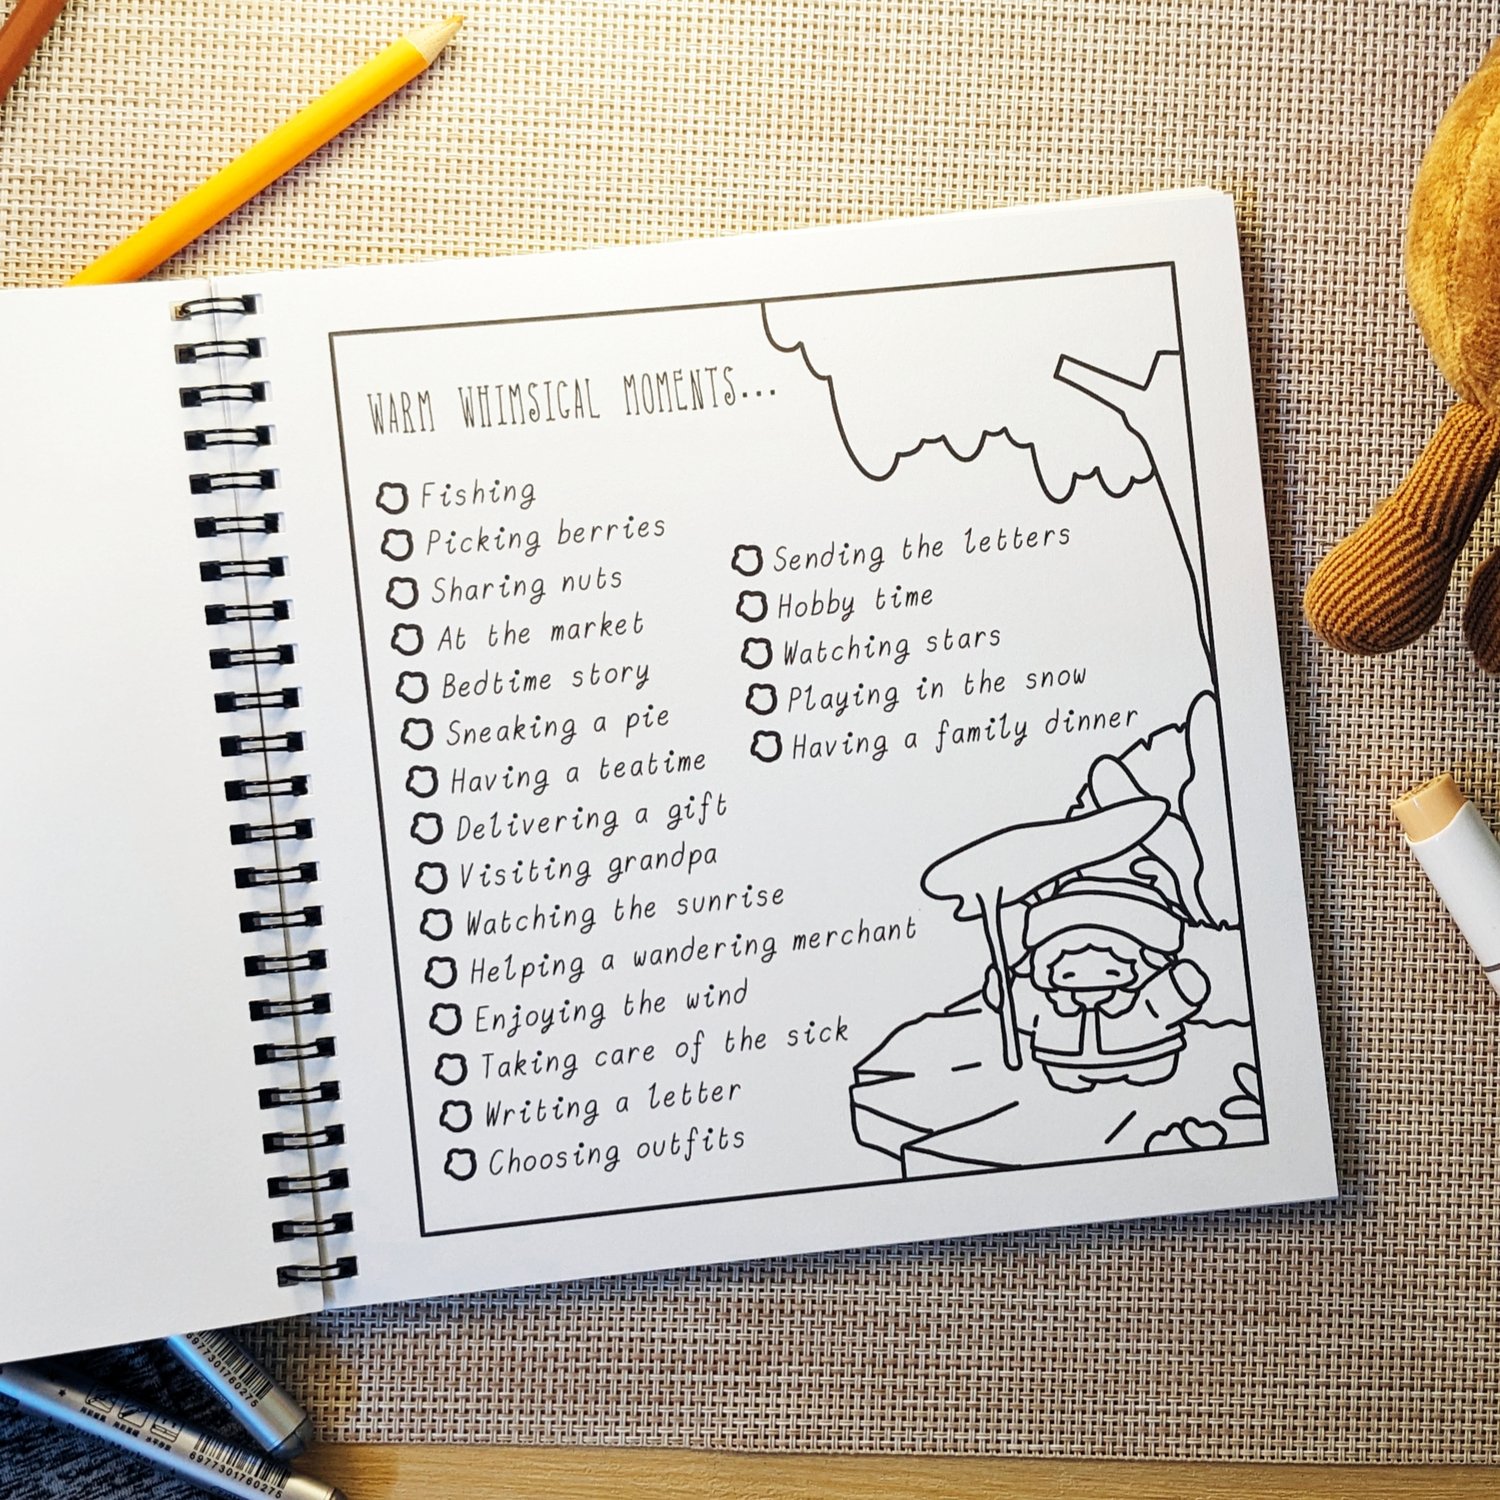 WARM WHIMSICAL MOMENTS...
Fishing
Picking berries
Sharing nuts
At the market
Bedtime story
Sneaking a pie
Having a teatime
Delivering a gift
Visiting grandpa
Watching the sunrise
Helping a wandering merchant
Enjoying the wind
Taking care of the sick
Writing a letter
Choosing outfits
Sending the letters
Hobby time
Watching stars
Playing in the snow
Having a family dinner
6977301760275
6977301760275